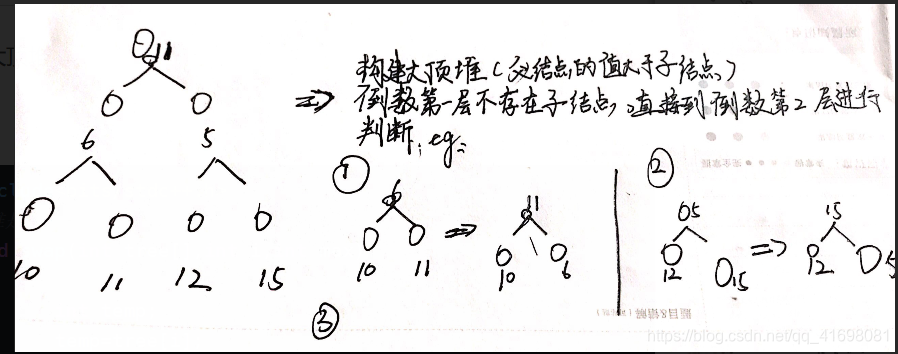 11
构建大顶堆(父结点的值大于子结点)
⇒ 倒数第一层不存在子结点,直接到倒数第2层进行
判断, eg:
6 5
10 11 12 15
①
6
10 11
⇒
11
10 6
②
05
12 15
⇒
15
12 5
③
https://blog.csdn.net/qq_41698081